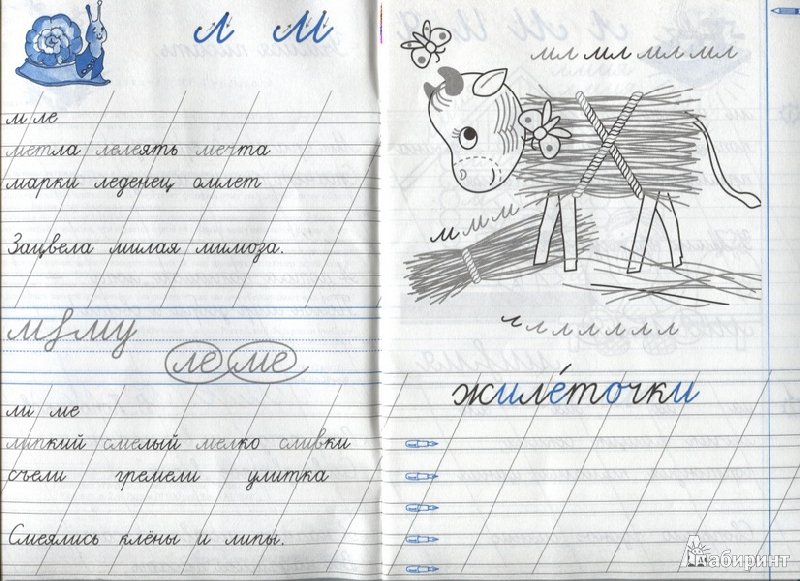 л м
м ле
метла лелеять мечта
марки леденец омлет
Зацвела милая мимоза.
ле ме
ли ме
липкий смелый мелко сливки
съели гремели улитка
Смеялись клёны и липы.
мл мл мл мл
м м м
л л л л л л
жиле́точки
Лабиринт